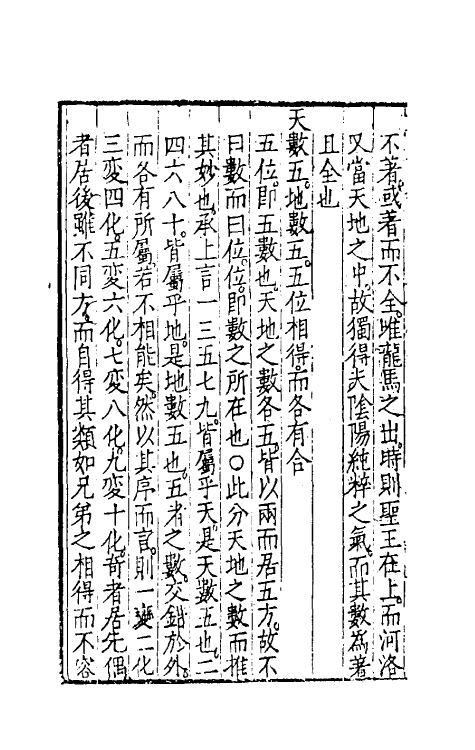 不著。或著而不全。唯龍馬之出。時則聖王在上。而河洛
又當天地之中。故獨得夫陰陽純粹之氣。而其數為著
且全也
天數五。地數五。五位相得。而各有合
五位。即五數也。天地之數各五。皆以兩而居五方。故不
曰數而曰位。位。即數之所在也〇此分天地之數而推
其妙也。承上言一三五七九。皆屬乎天。是天數五也。二
四六八十。皆屬乎地。是地數五也。五者之數。交錯於外。
而各有所屬。若不相能矣。然以其序而言。則一變二化
三变四化。五变六化。七变八化。九变十化。奇者居先。偶
者居後。雖不同方。而自得其類。如兄弟之相得而不容